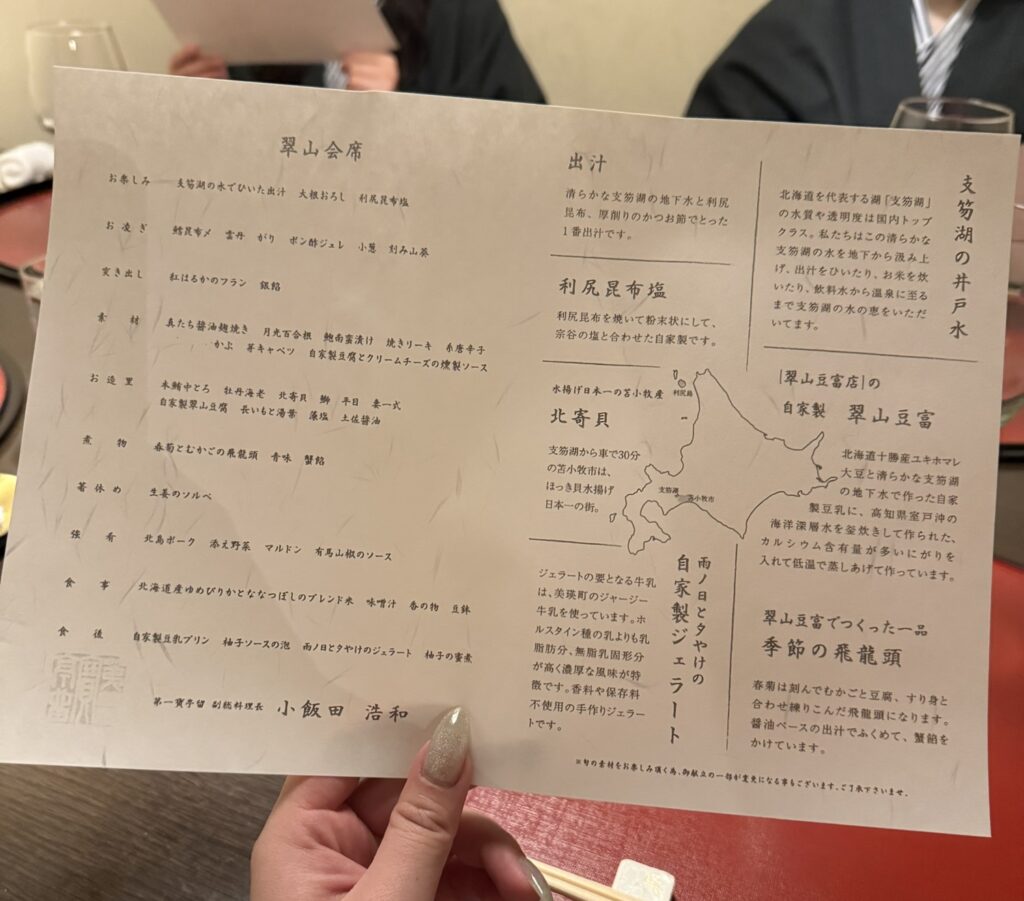 翠山会席
お楽しみ 支笏湖の水でひいた出汁 大根おろし 利尻昆布塩
お凌ぎ 鱈昆布〆 雲丹 がり ポン酢ジュレ 小葱 刻み山葵
突き出し 紅はるかのフラン 銀餡
素材 真たち醤油麹焼き 月光百合根 鮑南蛮漬け 焼きリーキ 糸唐辛子
かぶ 芽キャベツ 自家製豆腐とクリームチーズの燻製ソース
お造里 本鮪中とろ 牡丹海老 北寄貝 鰤 平目 妻一式
自家製翠山豆腐 長いもと湯葉 藻塩 土佐醤油
煮物 春菊とむかごの飛龍頭 青味 蟹餡
箸休め 生姜のソルベ
強肴 北島ポーク 添え野菜 マルドン 有馬山椒のソース
食事 北海道産ゆめぴりかとななつぼしのブレンド米 味噌汁 香の物 豆鉢
食後 自家製豆乳プリン 柚子ソースの泡 雨ノ日と夕やけのジェラート 柚子の蜜煮
第一寶亭留 副総料理長 小飯田 浩和
出汁
清らかな支笏湖の地下水と利尻
昆布、厚削りのかつお節でとった
1番出汁です。
利尻昆布塩
利尻昆布を焼いて粉末状にして、
宗谷の塩と合わせた自家製です。
水揚げ日本一の苫小牧産
北寄貝
支笏湖から車で30分
の苫小牧市は、
ほっき貝水揚げ
日本一の街。
利尻島
支笏湖
苫小牧市
雨ノ日と夕やけの
自家製ジェラート
ジェラートの要となる牛乳
は、美瑛町のジャージー
牛乳を使っています。ホ
ルスタイン種の乳よりも乳
脂肪分、無脂乳固形分
が高く濃厚な風味が特
徴です。香料や保存料
不使用の手作りジェラー
トです。
支笏湖の井戸水
北海道を代表する湖「支笏湖」
の水質や透明度は国内トップ
クラス。私たちはこの清らかな
支笏湖の水を地下から汲み上
げ、出汁をひいたり、お米を炊
いたり、飲料水から温泉に至る
まで支笏湖の水の恵をいただ
いてます。
「翠山豆富店」の
自家製 翠山豆富
北海道十勝産ユキホマレ
大豆と清らかな支笏湖
の地下水で作った自家
製豆乳に、高知県室戸沖の
海洋深層水を釜炊きして作られた、
カルシウム含有量が多いにがりを
入れて低温で蒸しあげて作っています。
翠山豆富でつくった一品
季節の飛龍頭
春菊は刻んでむかごと豆腐、すり身と
合わせ練りこんだ飛龍頭になります。
醤油ベースの出汁でふくめて、蟹餡を
かけています。
※旬の素材をお楽しみ頂く為、御献立の一部が変更になる事もございます。ご了承下さいませ。